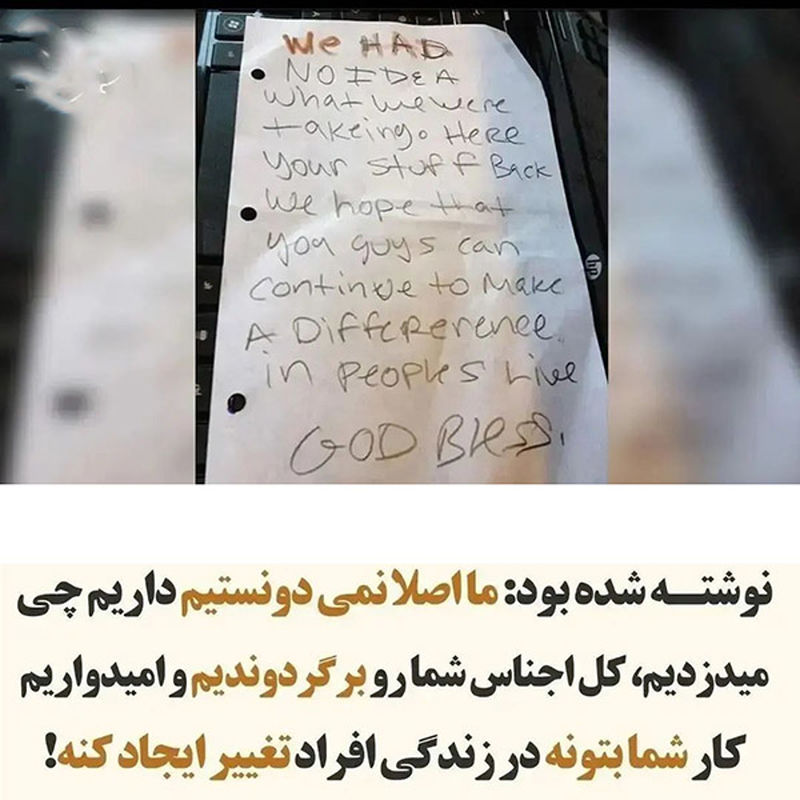 We HAD
NO IDEA
what we were
takeing. Here
your stuff Back
We hope that
you guys can
continue to Make
A Differerence
in peoples Live
GOD Bless.
hp
نوشته شده بود: ما اصلا نمی دونستیم داریم چی
میدزدیم، کل اجناس شما رو برگردوندیم و امیدواریم
کار شما بتونه در زندگی افراد تغییر ایجاد کنه!